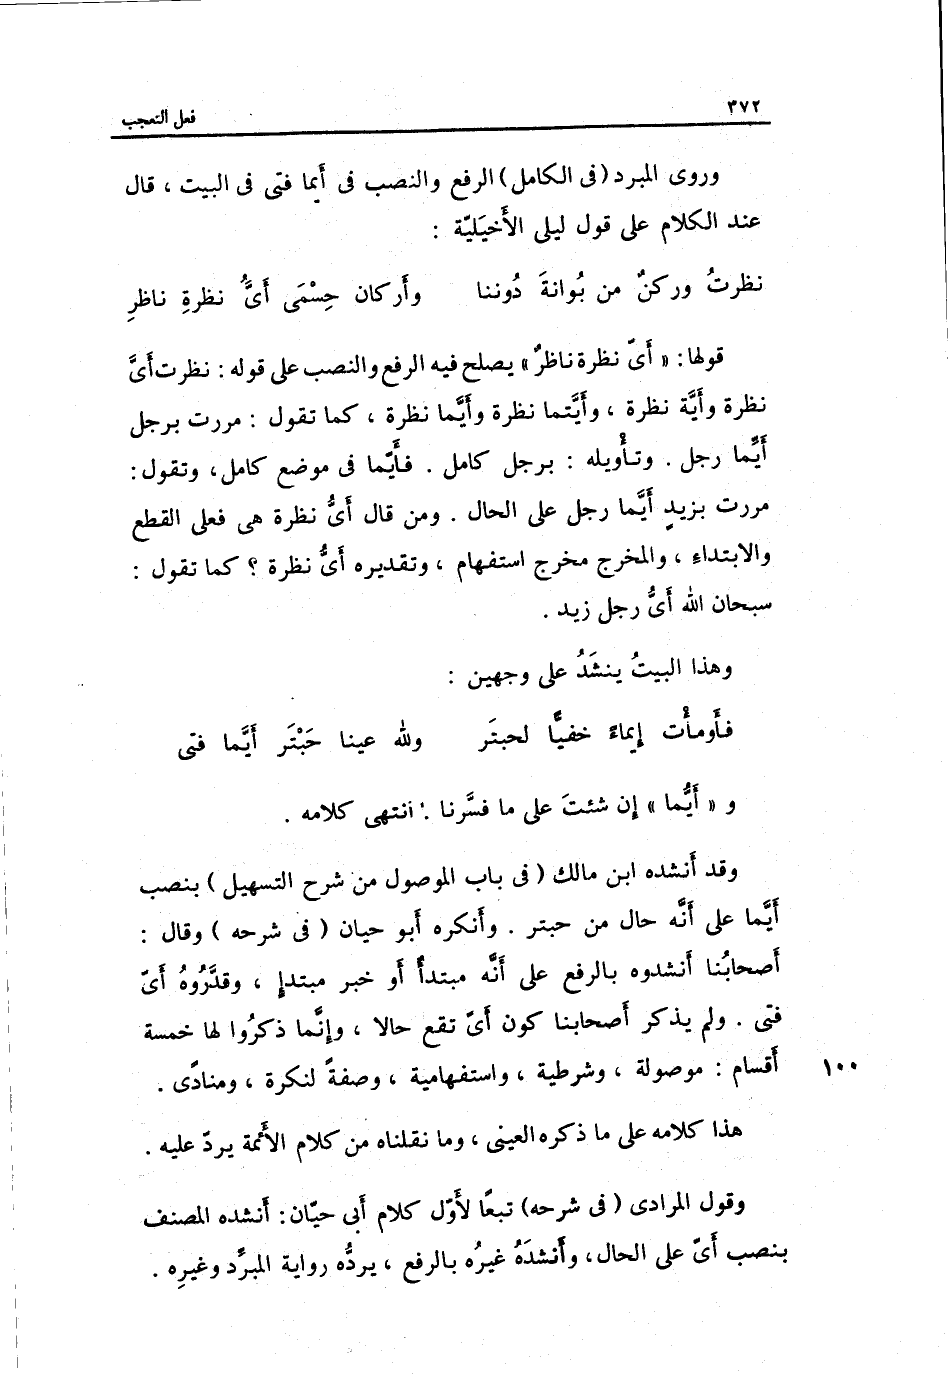 ٣٧٢
فعل التعجب
وروى المبرد (فى الكامل) الرفع والنصب فى أيما فتى فى البيت ، قال
عند الكلام على قول ليلى الأَخيَليّة :
نظرتُ وركنٌ من بُوانةَ دُوننا وأركان حِسْمَى أَىُّ نظرةِ ناظرِ
قولها: « أَىّ نظرة ناظرٌ » يصلح فيه الرفع والنصب على قوله : نظرت أَىَّ
نظرة وأَيَّة نظرة ، وأَيَّتما نظرة وأَيَّما نظرة ، كما تقول : مررت برجل
أَيِّما رجل . وتأْويله : برجل كامل . فأَيّما فى موضع كامل، وتقول:
مررت بزيدٍ أَيَّما رجل على الحال . ومن قال أَىُّ نظرة هى فعلى القطع
والابتداءِ ، والمخرج مخرج استفهام ، وتقديره أَىُّ نظرة ؟ كما تقول :
سبحان الله أَىُّ رجل زيد .
وهذا البيتُ ينشَدُ على وجهين :
فأَومأْت إيماءً خفيًّا لحبتَر ولله عينا حَبْتَر أَيَّما فتى
و « أَيُّما » إن شئتَ على ما فسَّرنا . انتهى كلامه .
وقد أَنشده ابن مالك ( فى باب الموصول من شرح التسهيل ) بنصب
أَيَّما على أَنَّه حال من حبتر . وأَنكره أَبو حيان ( فى شرحه ) وقال :
أَصحابُنا أَنشدوه بالرفع على أَنَّه مبتدأٌ أَو خبر مبتدإ ، وقدَّرُوهُ أَىّ
فتى . ولم يذكر أَصحابنا كون أَىّ تقع حالا ، وإنَّما ذكرُوا لها خمسة
أَقسام : موصولة ، وشرطية ، واستفهامية ، وصفةً لنكرة ، ومنادًى . ١٠٠
هذا كلامه على ما ذكره العينى ، وما نقلناه من كلام الأَئمة يردّ عليه .
وقول المرادى ( فى شرحه) تبعًا لأَوّل كلام أَبى حيّان: أَنشده المصنف
بنصب أَىّ على الحال، وأَنشدَهُ غيرُه بالرفع ، يردُّه رواية المبرِّد وغيرِه .